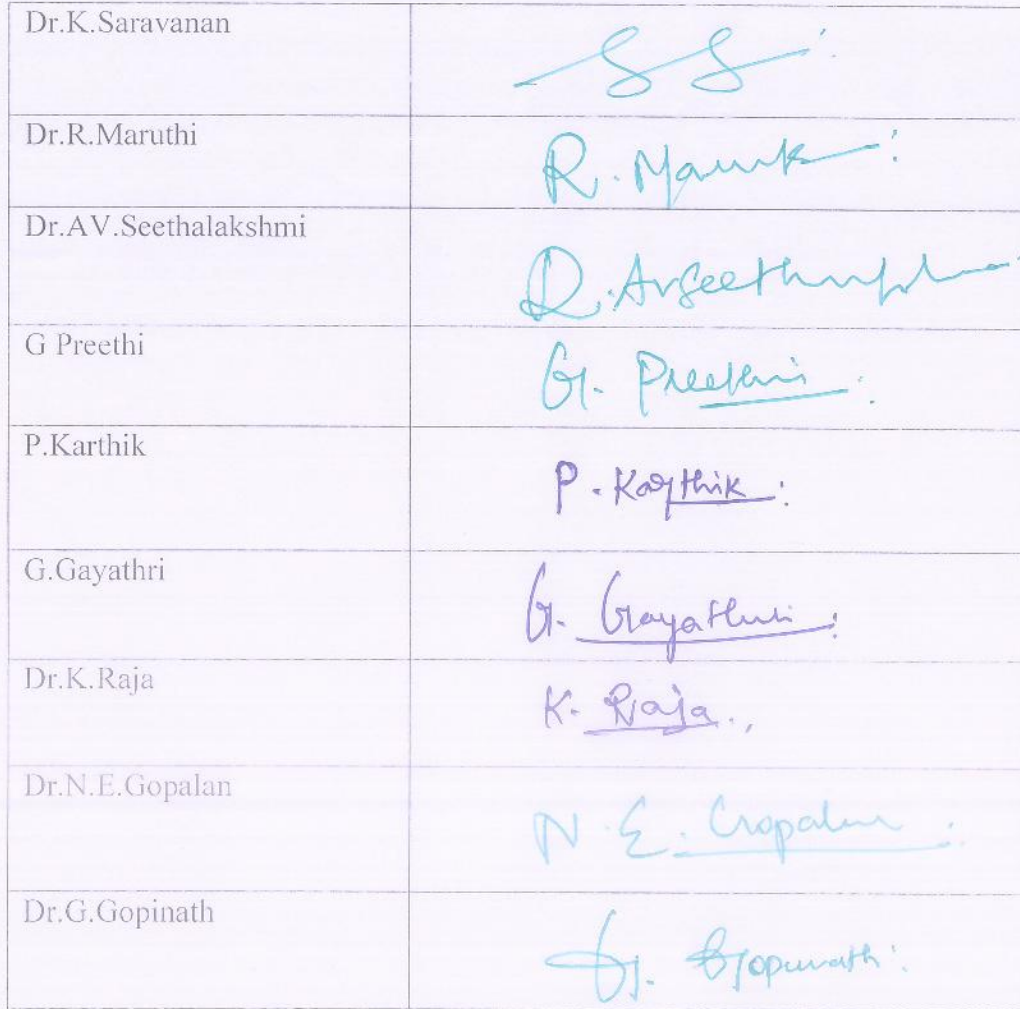 Dr.K.Saravanan
Dr.R.Maruthi
R.
Dr.AV.Seethalakshmi
G Preethi
G. Preethi
P.Karthik
P. Karthik
G.Gayathri
G. Gayathri
Dr.K.Raja
K. Raja
Dr.N.E.Gopalan
N. E. Gopalan
Dr.G.Gopinath
G. Gopinath